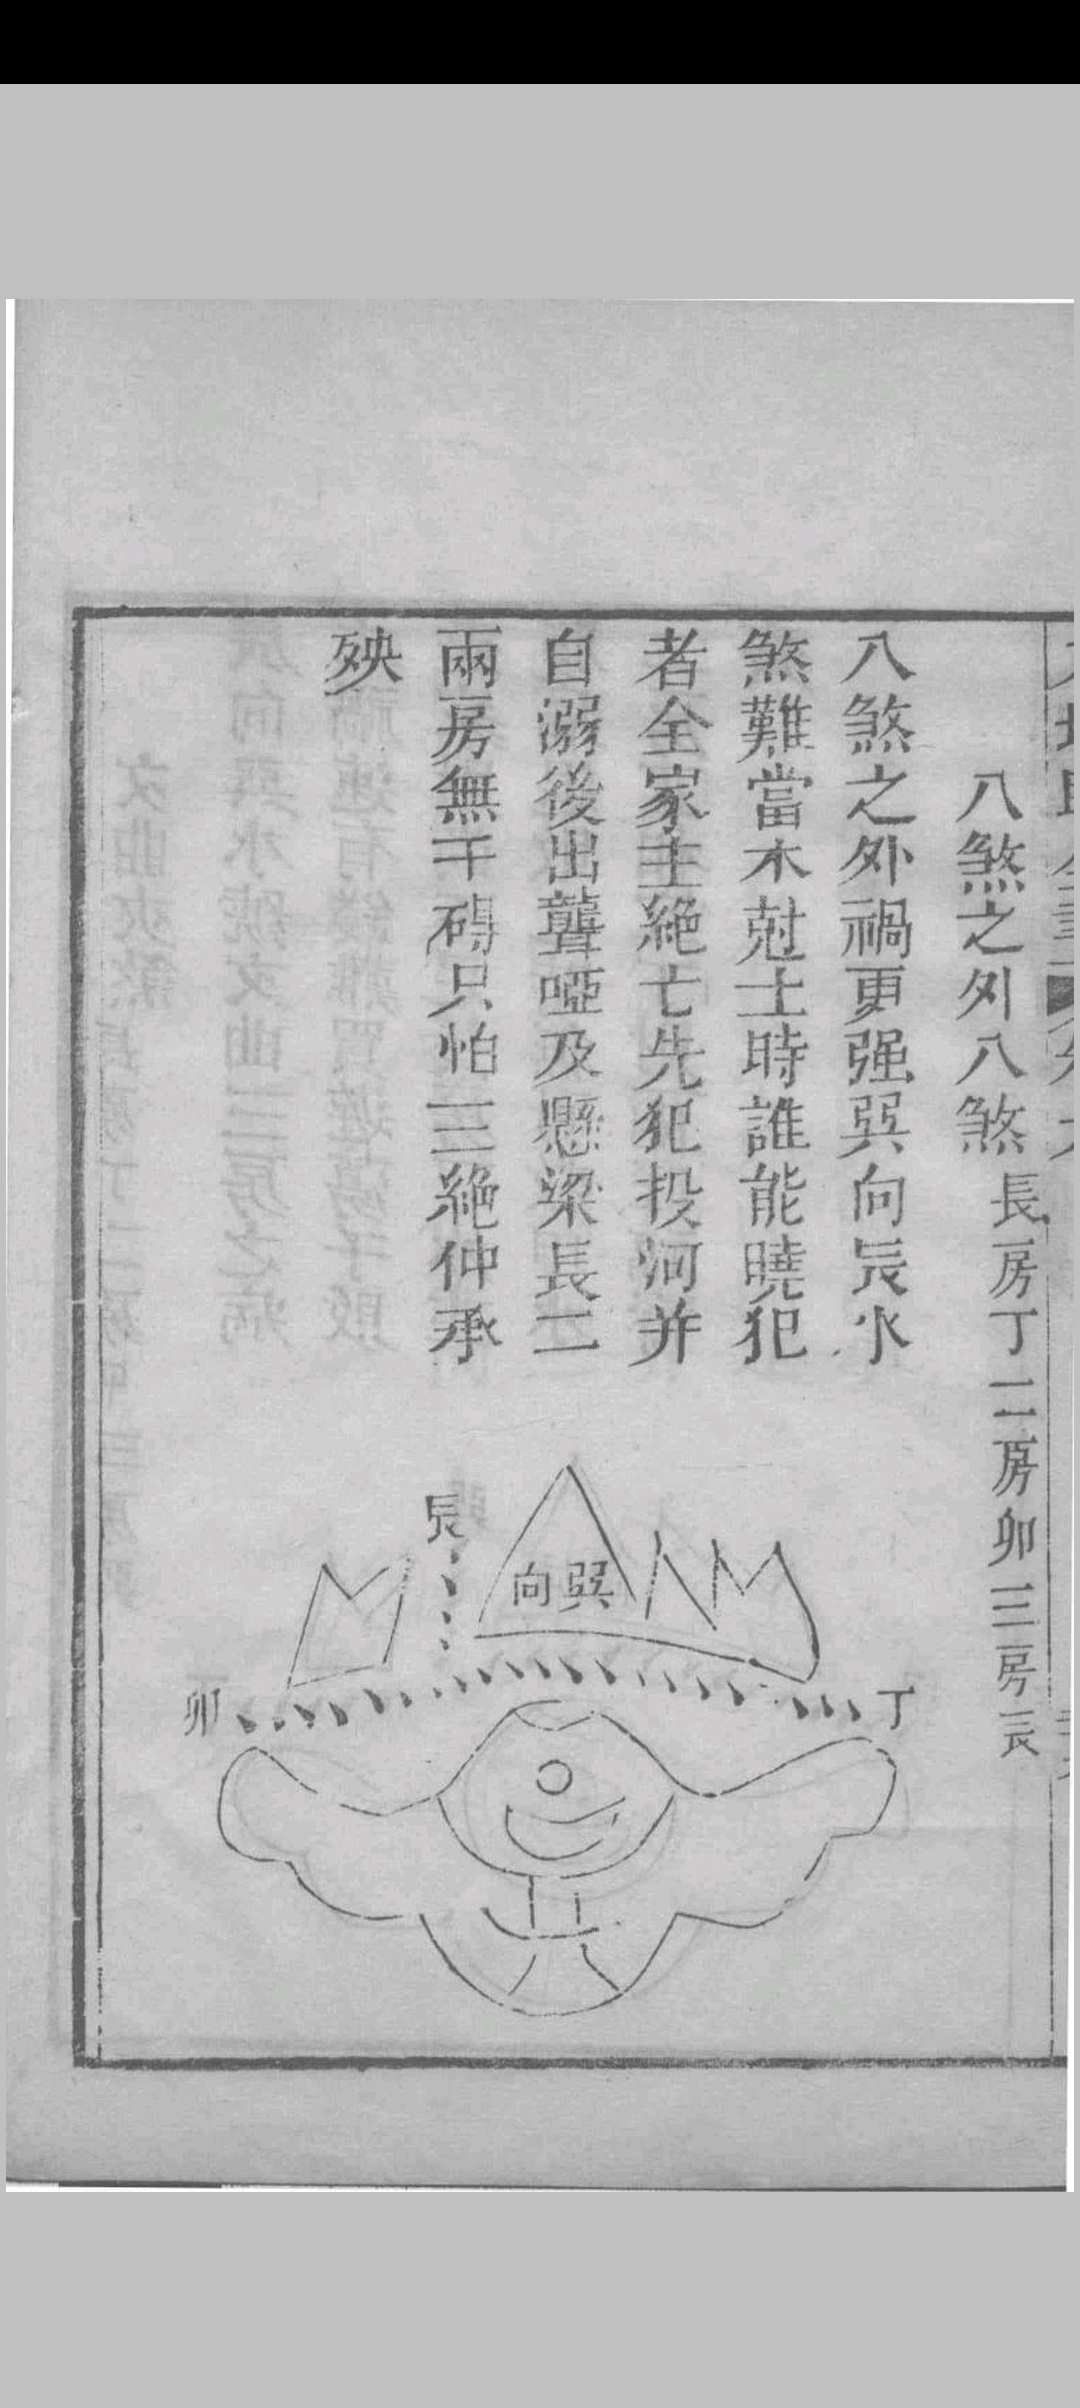 八煞之外八煞 長房丁二房卯三房辰
八煞之外禍更强巽向辰水
煞難當木尅土時誰能曉犯
者全家主絶亡先犯投河并
自溺後出聾啞及懸梁長二
兩房無干碍只怕三絶仲承
殃
辰
向巽
卯
丁